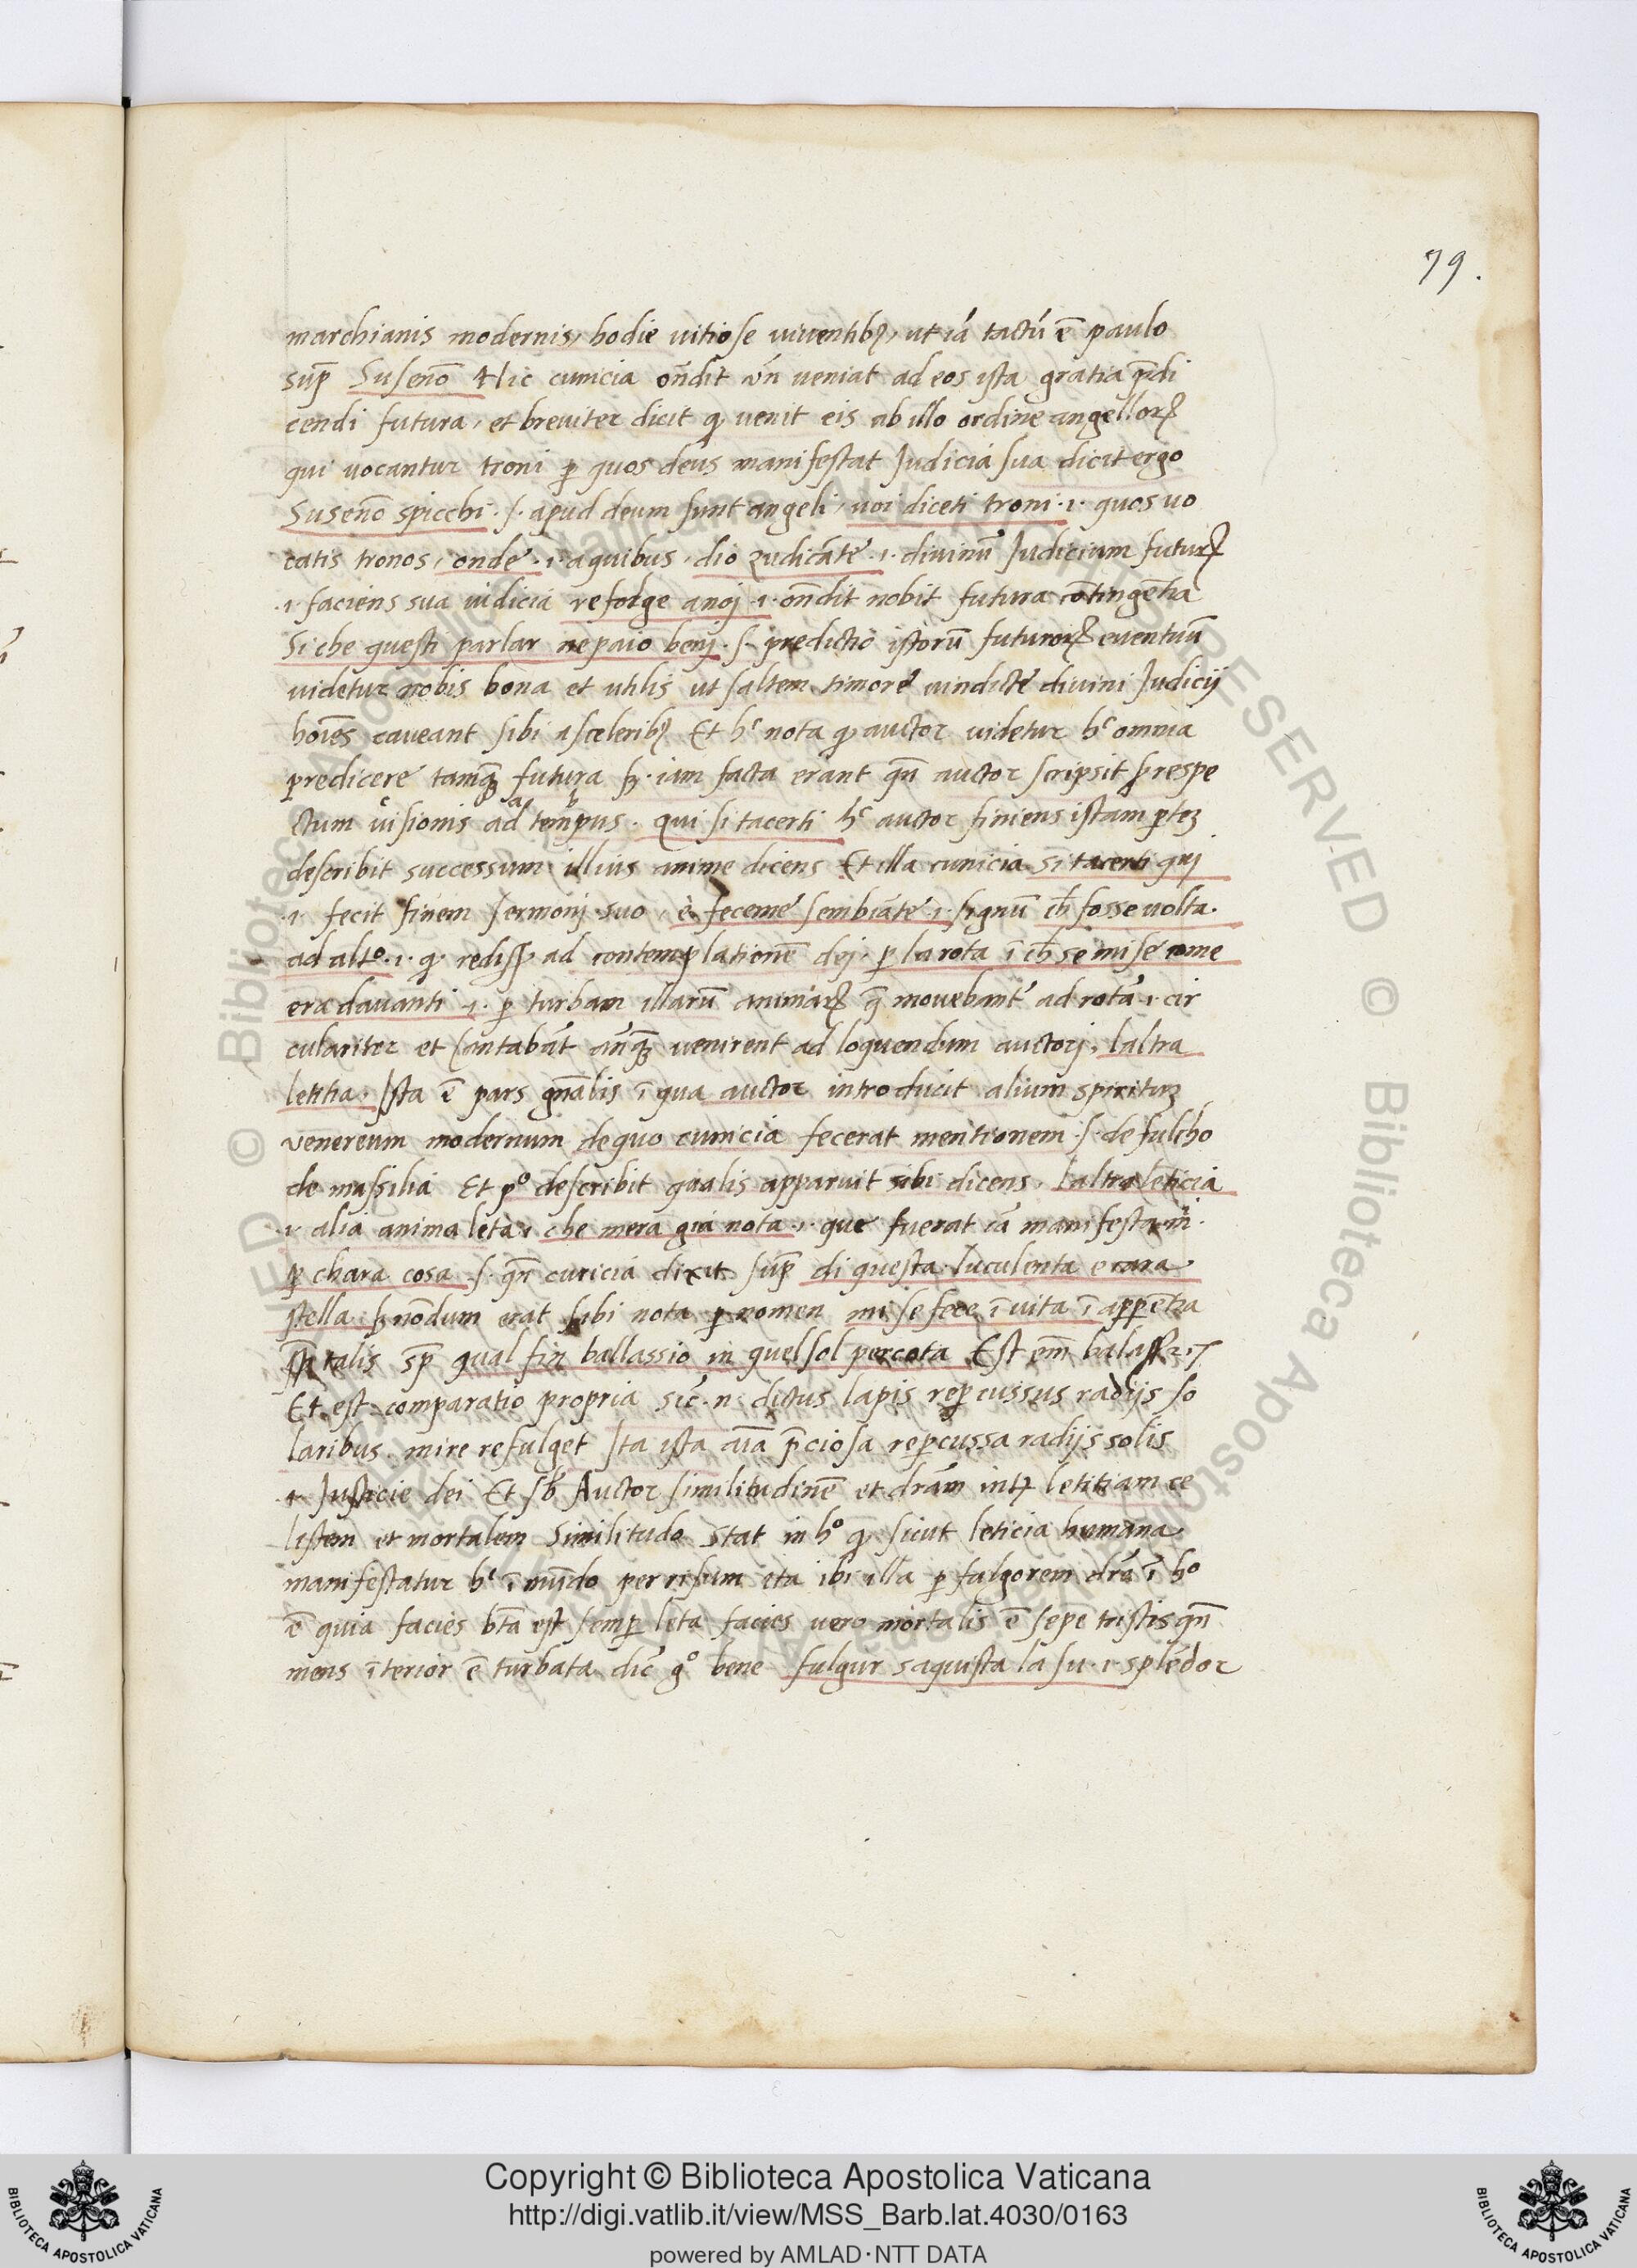 79.
marchianis modernis, hodie vitiose viventibꝫ, ut iā tactū ē paulo
sup̄ Susenō Hic cunicia on̄dit vn̄ veniat ad eos ista gratia p̄di
cendi futura, et breviter dicit ꝙ venit eis ab illo ordine angelloꝝ
qui vocantur troni ꝑ quos deus manifestat Judicia sua dicit ergo
Susenō spicchi .s. apud deum sunt angeli, voi diceti troni .i. quos vo
catis tronos, onde .i. a quibus, dio zudicāte .i. divinū Judicium futuꝝ
.i. faciens sua iudicia refolge anoj .i. on̄dit nobit futura cōtingētia
Si che questi parlar ne paio benj .s. predictio istorū futuroꝝ eventuū
videtur nobis bona et utilis ut saltem timore vindicte divini Judicij
hoīes caveant sibi a sceleribꝫ Et hᶜ nota ꝙ auctor videtur hᶜ omnia
predicere tamqꝫ futura sꝫ iam facta erant qn̄ auctor scripsit ꝑ respe
ctum visionis ad tempus. Qui si tacerti hᶜ auctor finiens istam ꝑteꝫ
describit successum illius anime dicens Et illa cunicia si tacerti quj
.i. fecit finem sermonj suo, e feceme sembiāte .i. signū ch̄ fosse volta
ad alto .i. ꝙ redijt ad contemplationē dej ꝑ la rota ī ch̄ se mise come
era davanti .i. ꝑ turbam illarū animaꝝ q̄ movebant̄ ad rotā .i. cir
culariter et cantabāt an̄qꝫ venirent ad loquendum auctorj, laltra
letitia. Ista ē pars gn̄alis ī qua auctor introducit alium spirituꝫ
venereum modernum de quo cunicia fecerat mentionem .s. de fulcho
de massilia Et pᵒ describit qualis apparuit sibi dicens, laltra leticia
.i. alia anima leta, che mera gia nota .i. que fuerat iā manifesta m̄
ꝑ chara cosa .s. qn̄ curicia dixit sup̄ di questa luculenta e cara
stella sꝫ nōdum erat sibi nota ꝑ nomen mi se fece ī vita ī apparētia
talis sp̄ qual fin ballassio in quel sol percota Est em̄
Et est comparatio propria sic̄ .n. dictus lapis reꝑcussus radijs so
laribus mire refulget Ita ista aīa p̄ciosa reꝑcussa radijs solis
.i. Justicie dei Et Auctor similitudinē et dr̄am int̄ letitiam ce
lestem et mortalem Similitudo stat in hᵒ ꝙ sicut leticia humana
manifestatur hᶜ ī mūdo per risum ita ibi illa ꝑ fulgorem dr̄a ī hᵒ
ē quia facies bt̄a est semꝑ leta facies vero mortalis ē sepe tristis qn̄
mens īterior ē turbata dic̄ gᵒ bene fulgur saquista la su .i. splēdor
Copyright © Biblioteca Apostolica Vaticana
http://digi.vatlib.it/view/MSS_Barb.lat.4030/0163
powered by AMLAD·NTT DATA
BIBLIOTECA APOSTOLICA VATICANA
BIBLIOTECA APOSTOLICA VATICANA